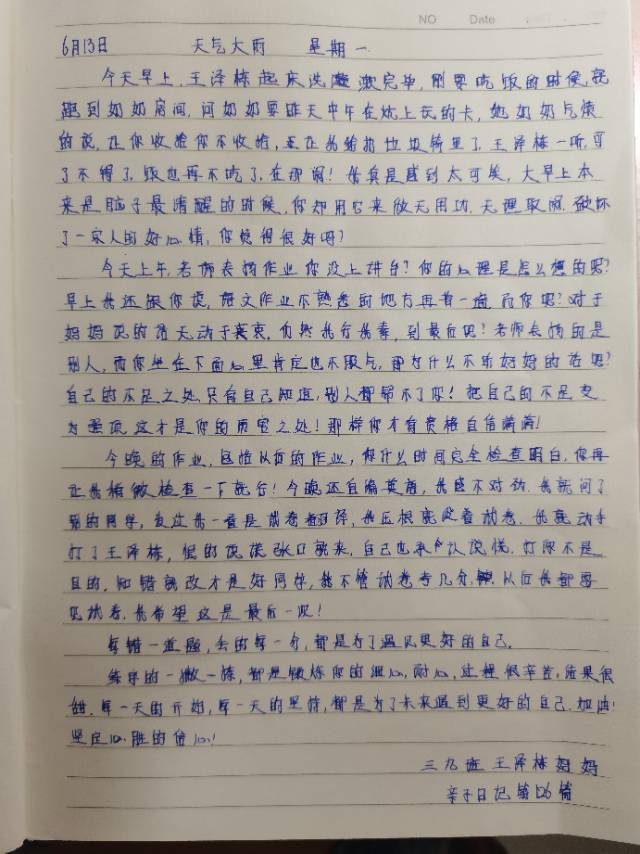 NO Date
6月13日 天气大雨 星期一
今天早上,王泽栋起床洗漱完毕,刚要吃饭的时候,就
跑到奶奶房间,问奶奶要昨天中午在炕上玩的卡,她奶奶气愤
的说,让你收拾你不收拾,直让我给扔垃圾箱里了,王泽栋一听,可
了不得了,饭也再不吃了,在那闹!我真是感到太可笑,大早上本
来是脑子最清醒的时候,你却用它来做无用功,无理取闹,破坏
了一家人的好心情,你觉得很好吗?
今天上午,老师表扬作业你没上讲台?你的心理是怎么想的呢?
早上我还跟你说,语文作业不熟悉的地方再看一遍,而你呢?对于
妈妈说的话无动于衷,仍然我行我素,到最后呢?老师表扬的是
别人,而你坐在下面心里肯定也不服气,那为什么不听妈妈的话呢?
自己的不足之处只有自己知道,别人都帮不了你!把自己的不足变
为强项,这才是你的厉害之处!那样你才有资格自信满满!
今晚的作业,包括以后的作业,你什么时间完全检查明白,你再
让我稍微检查一下就行!今晚还自编英语,我感不对劲,我就问了
别的同学,发过我一看是试卷翻译,我压根就没看试卷,我就动手
打了王泽栋,他的谎话张口就来,自己也承认说谎,打你不是
目的,知错就改才是好同学,我不管试卷考几分,从后我都要
见试卷,我希望这是最后一次!
每错一道题,会的每一分,都是为了遇见更好的自己。
练字的一撇一捺,都是锻炼你的细心,耐心,过程很辛苦,结果很
甜,每一天的开始,每一天的坚持,都是为了未来遇到更好的自己,加油!
坚定必胜的信心!
三九班 王泽栋妈妈
亲子日记第126篇